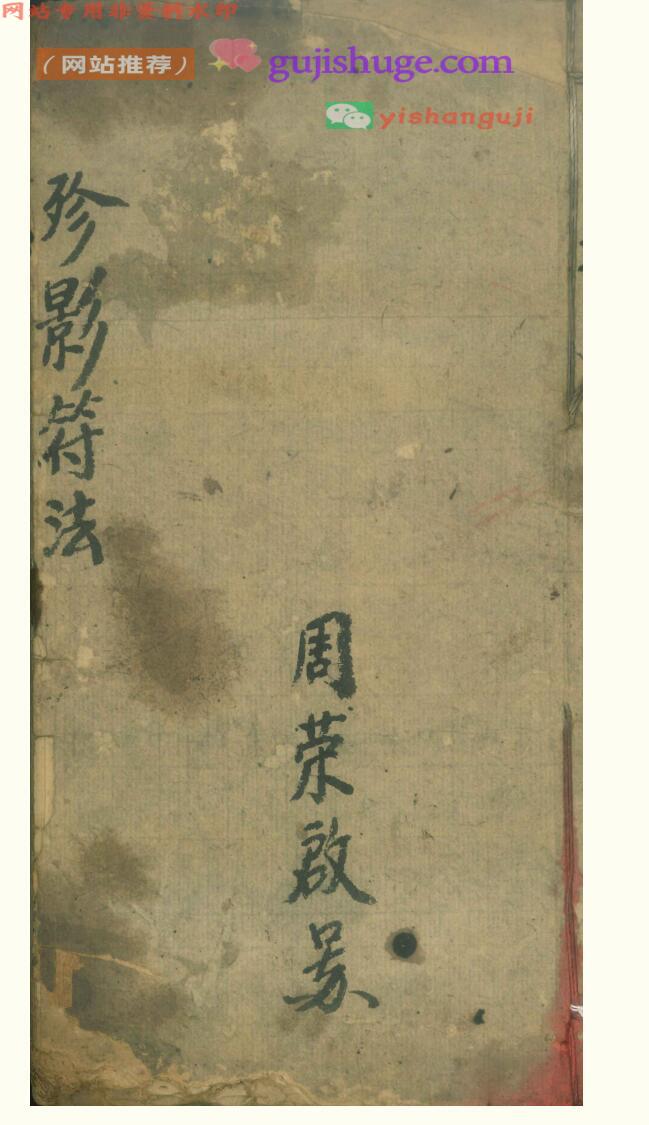 网站专用非水印
（网站推荐） gujishuge.com
yishanguji
珍影符法
周荣啟